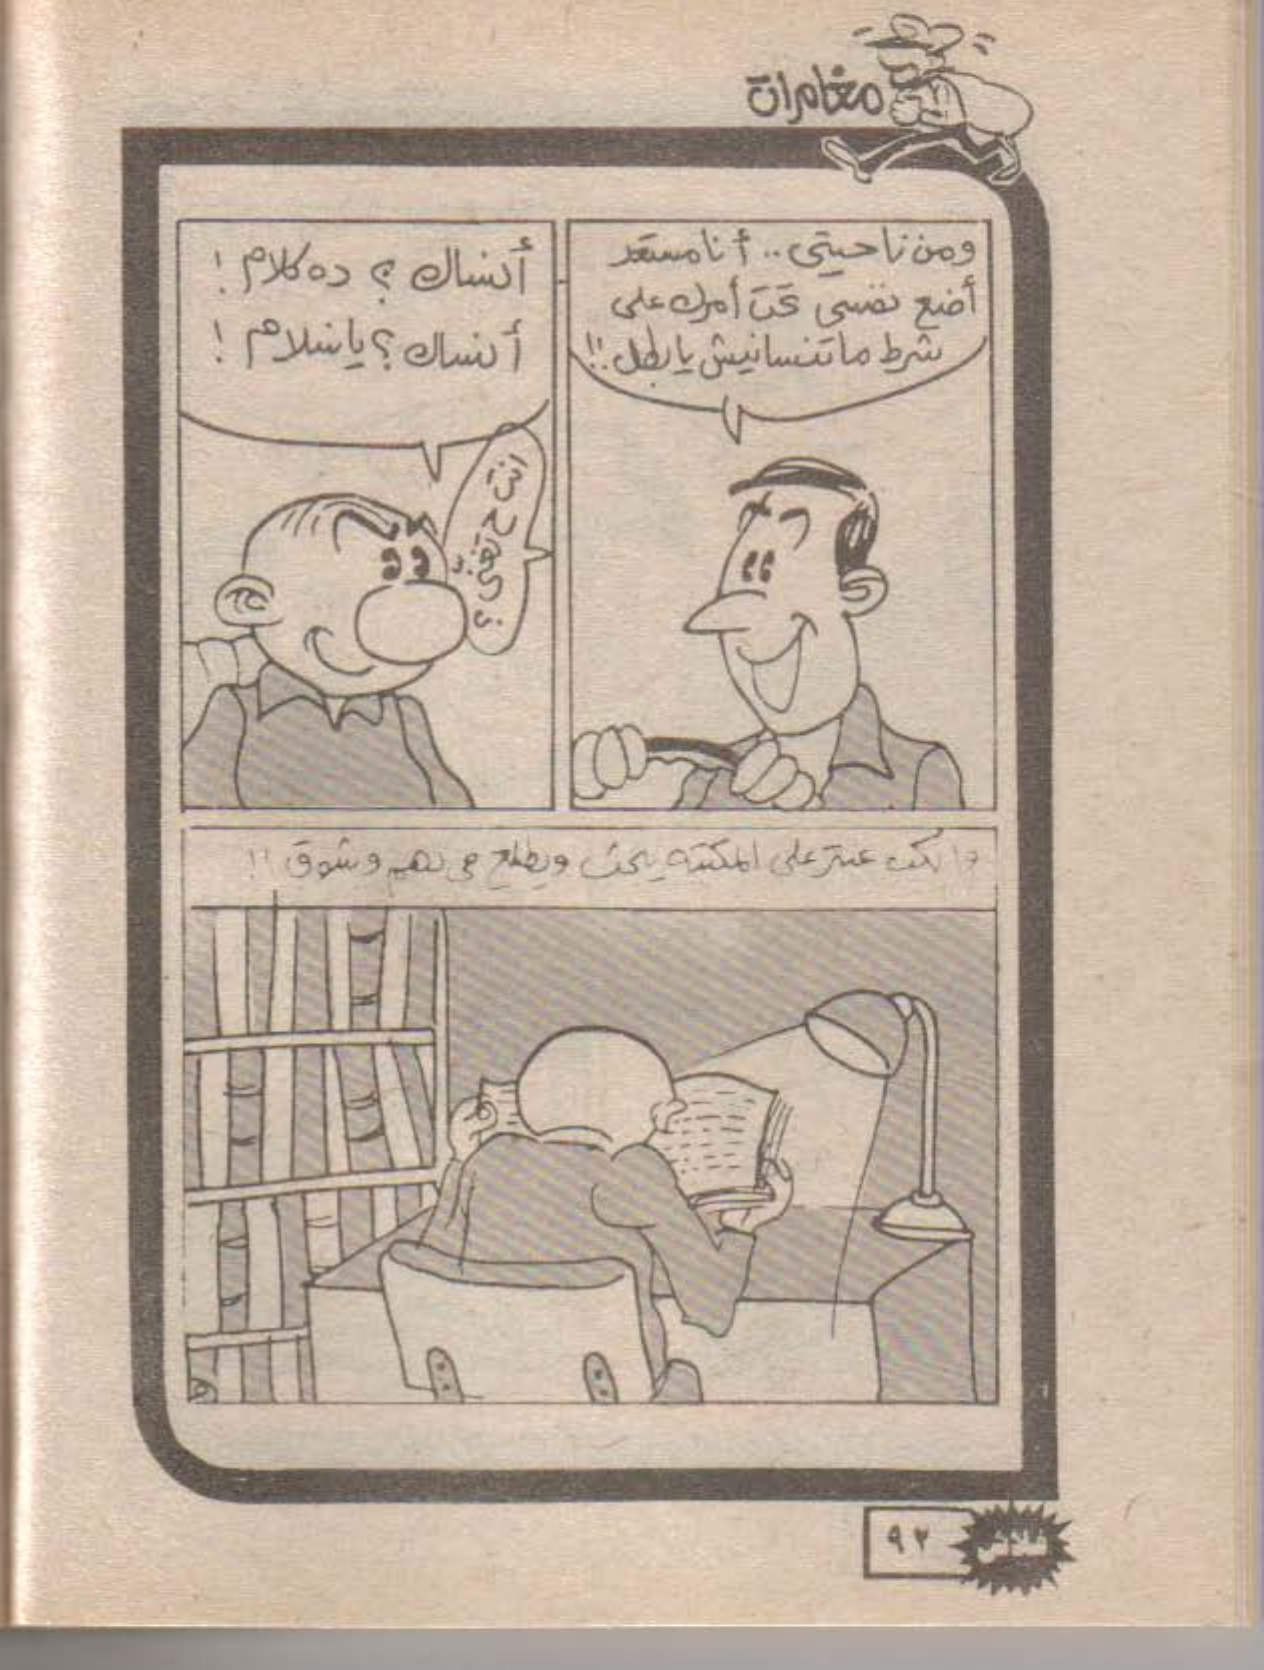 مغامرات
ومن ناحيتى .. أنا مستعد
أضع نفسى تحت أمرك على
شرط ما تنسانيش يا بطل !!
أنساك ؟ ده كلام !
أنساك ؟ يا سلام !
انت ح تغنى ؟
عنتر على المكتبه يبحث ويطلع فى نهم وشوق !!
فلاش
٩٢